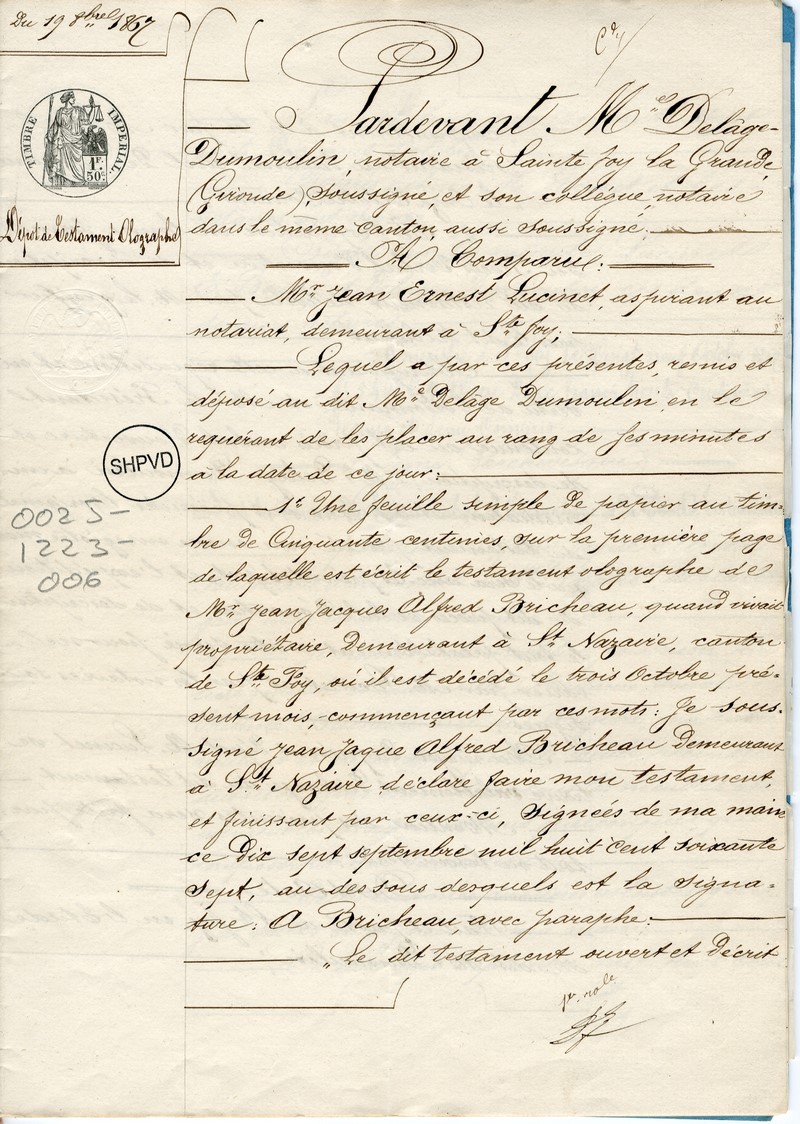 Du 19 8bre 1867
TIMBRE IMPERIAL
1F.
50c.
Dépôt de Testament Olographe
SHPVD
0025-
1223-
006
Pardevant Me Delage-
Dumoulin, notaire à Sainte Foy la Grande,
(Gironde), soussigné, et son collègue, notaire
dans le même canton, aussi soussigné.
A Comparu:
Mr Jean Ernest Lucinet, aspirant au
notariat, demeurant à Ste Foy;
Lequel a par ces présentes, remis et
déposé au dit Me Delage Dumoulin, en le
requérant de les placer au rang de ses minutes
à la date de ce jour:
1° Une feuille simple de papier au tim-
bre de Cinquante centimes, sur la première page
de laquelle est écrit le testament olographe de
Mr Jean Jacques Alfred Bricheau, quand vivait
propriétaire, demeurant à St Nazaire, canton
de Ste Foy, où il est décédé le trois Octobre pré-
sent mois, commençant par ces mots: Je sous-
signé Jean Jaque Alfred Bricheau demeurant
à St Nazaire déclare faire mon testament,
et finissant par ceux-ci, signées de ma main
ce dix sept septembre mil huit cent soixante
sept, au dessous desquels est la signa-
ture: A Bricheau, avec paraphe.
"Le dit testament ouvert et décrit
1er role